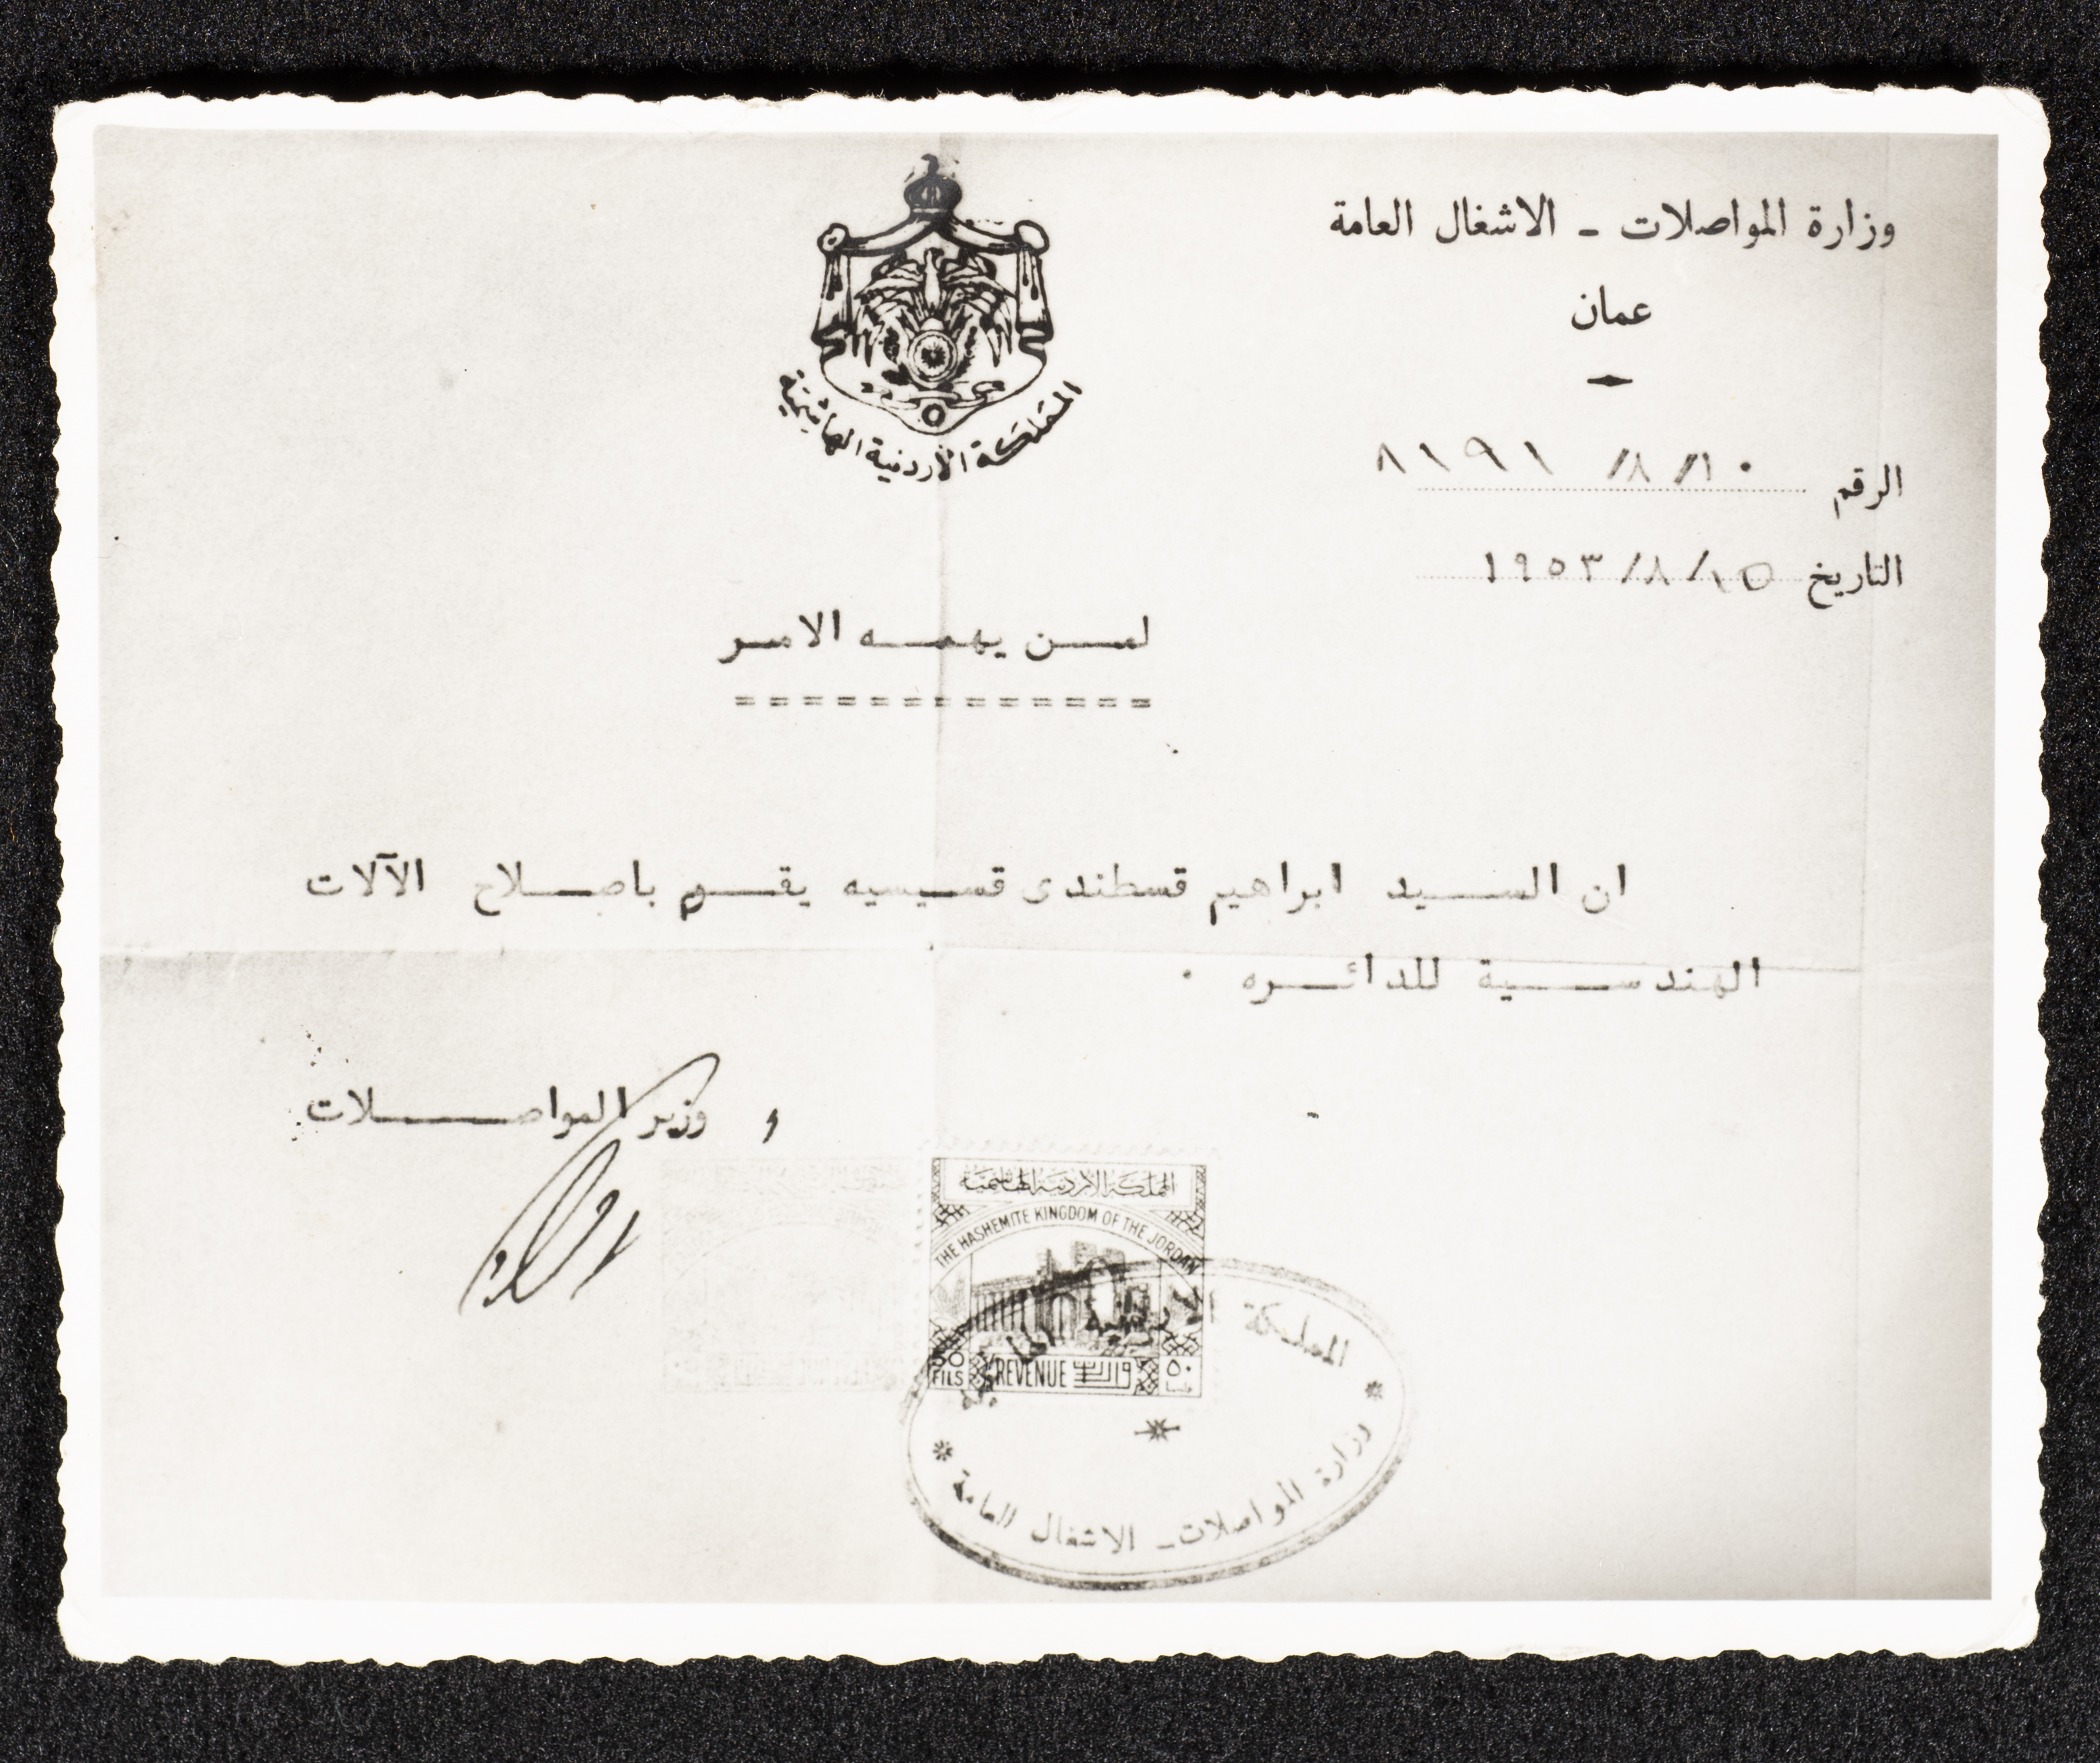 وزارة المواصلات - الاشغال العامة
عمان
المملكة الأردنية الهاشمية
الرقم ١٠/٨/ ٨١٩١
التاريخ ١٥/٨/١٩٥٣
لمن يهمه الامر
ان السيد ابراهيم قسطندى قسيسيه يقوم باصلاح الآلات
الهندسية للدائره .
وزير المواصلات
المملكة الاردنية الهاشمية
THE HASHEMITE KINGDOM OF THE JORDAN
50 FILS REVENUE واردات ٥٠ فلسا
المملكة الاردنية الهاشمية
وزارة المواصلات - الاشغال العامة